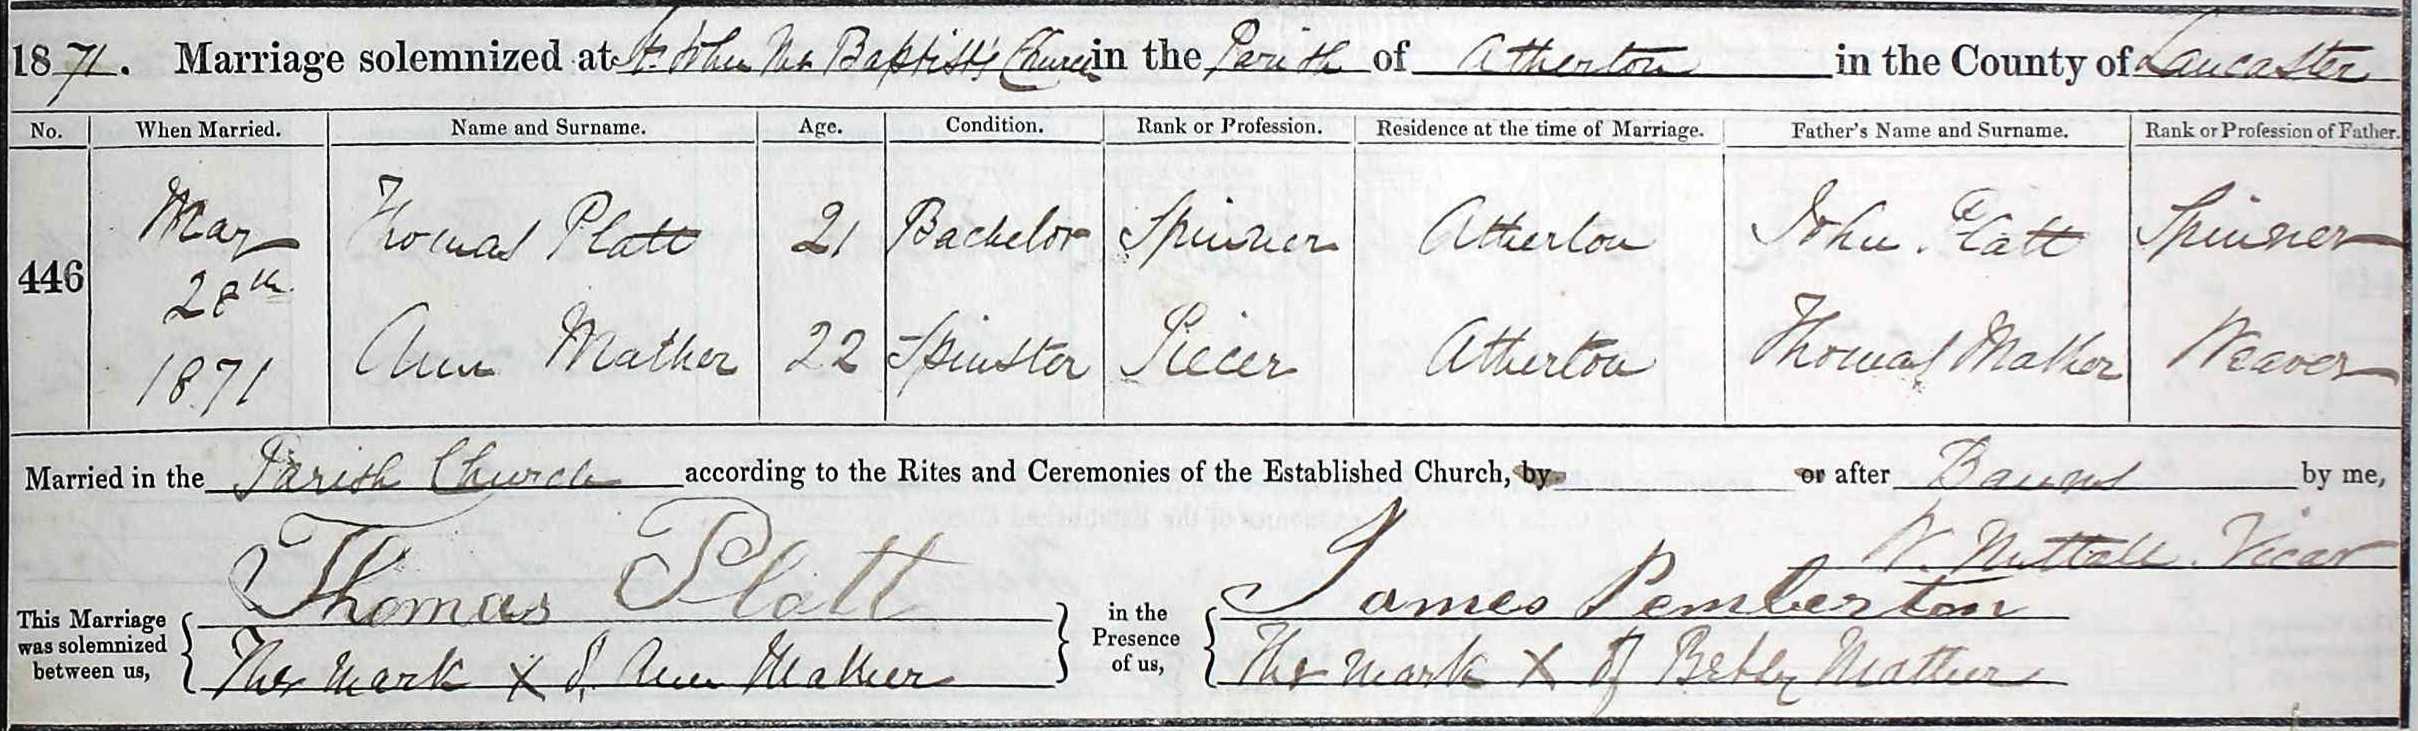 1871. Marriage solemnized at St. John the Baptist's Church in the Parish of Atherton in the County of Lancaster
No. When Married. Name and Surname. Age. Condition. Rank or Profession. Residence at the time of Marriage. Father's Name and Surname. Rank or Profession of Father.
446 May 28th 1871 Thomas Platt 21 Bachelor Spinner Atherton John Platt Spinner
Ann Mather 22 Spinster Piecer Atherton Thomas Mather Weaver
Married in the Parish Church according to the Rites and Ceremonies of the Established Church, by or after Banns by me,
W. Nuttall. Vicar
This Marriage was solemnized between us, Thomas Platt in the Presence of us, James Pemberton
The mark X of Ann Mather The mark X of Betsy Mather